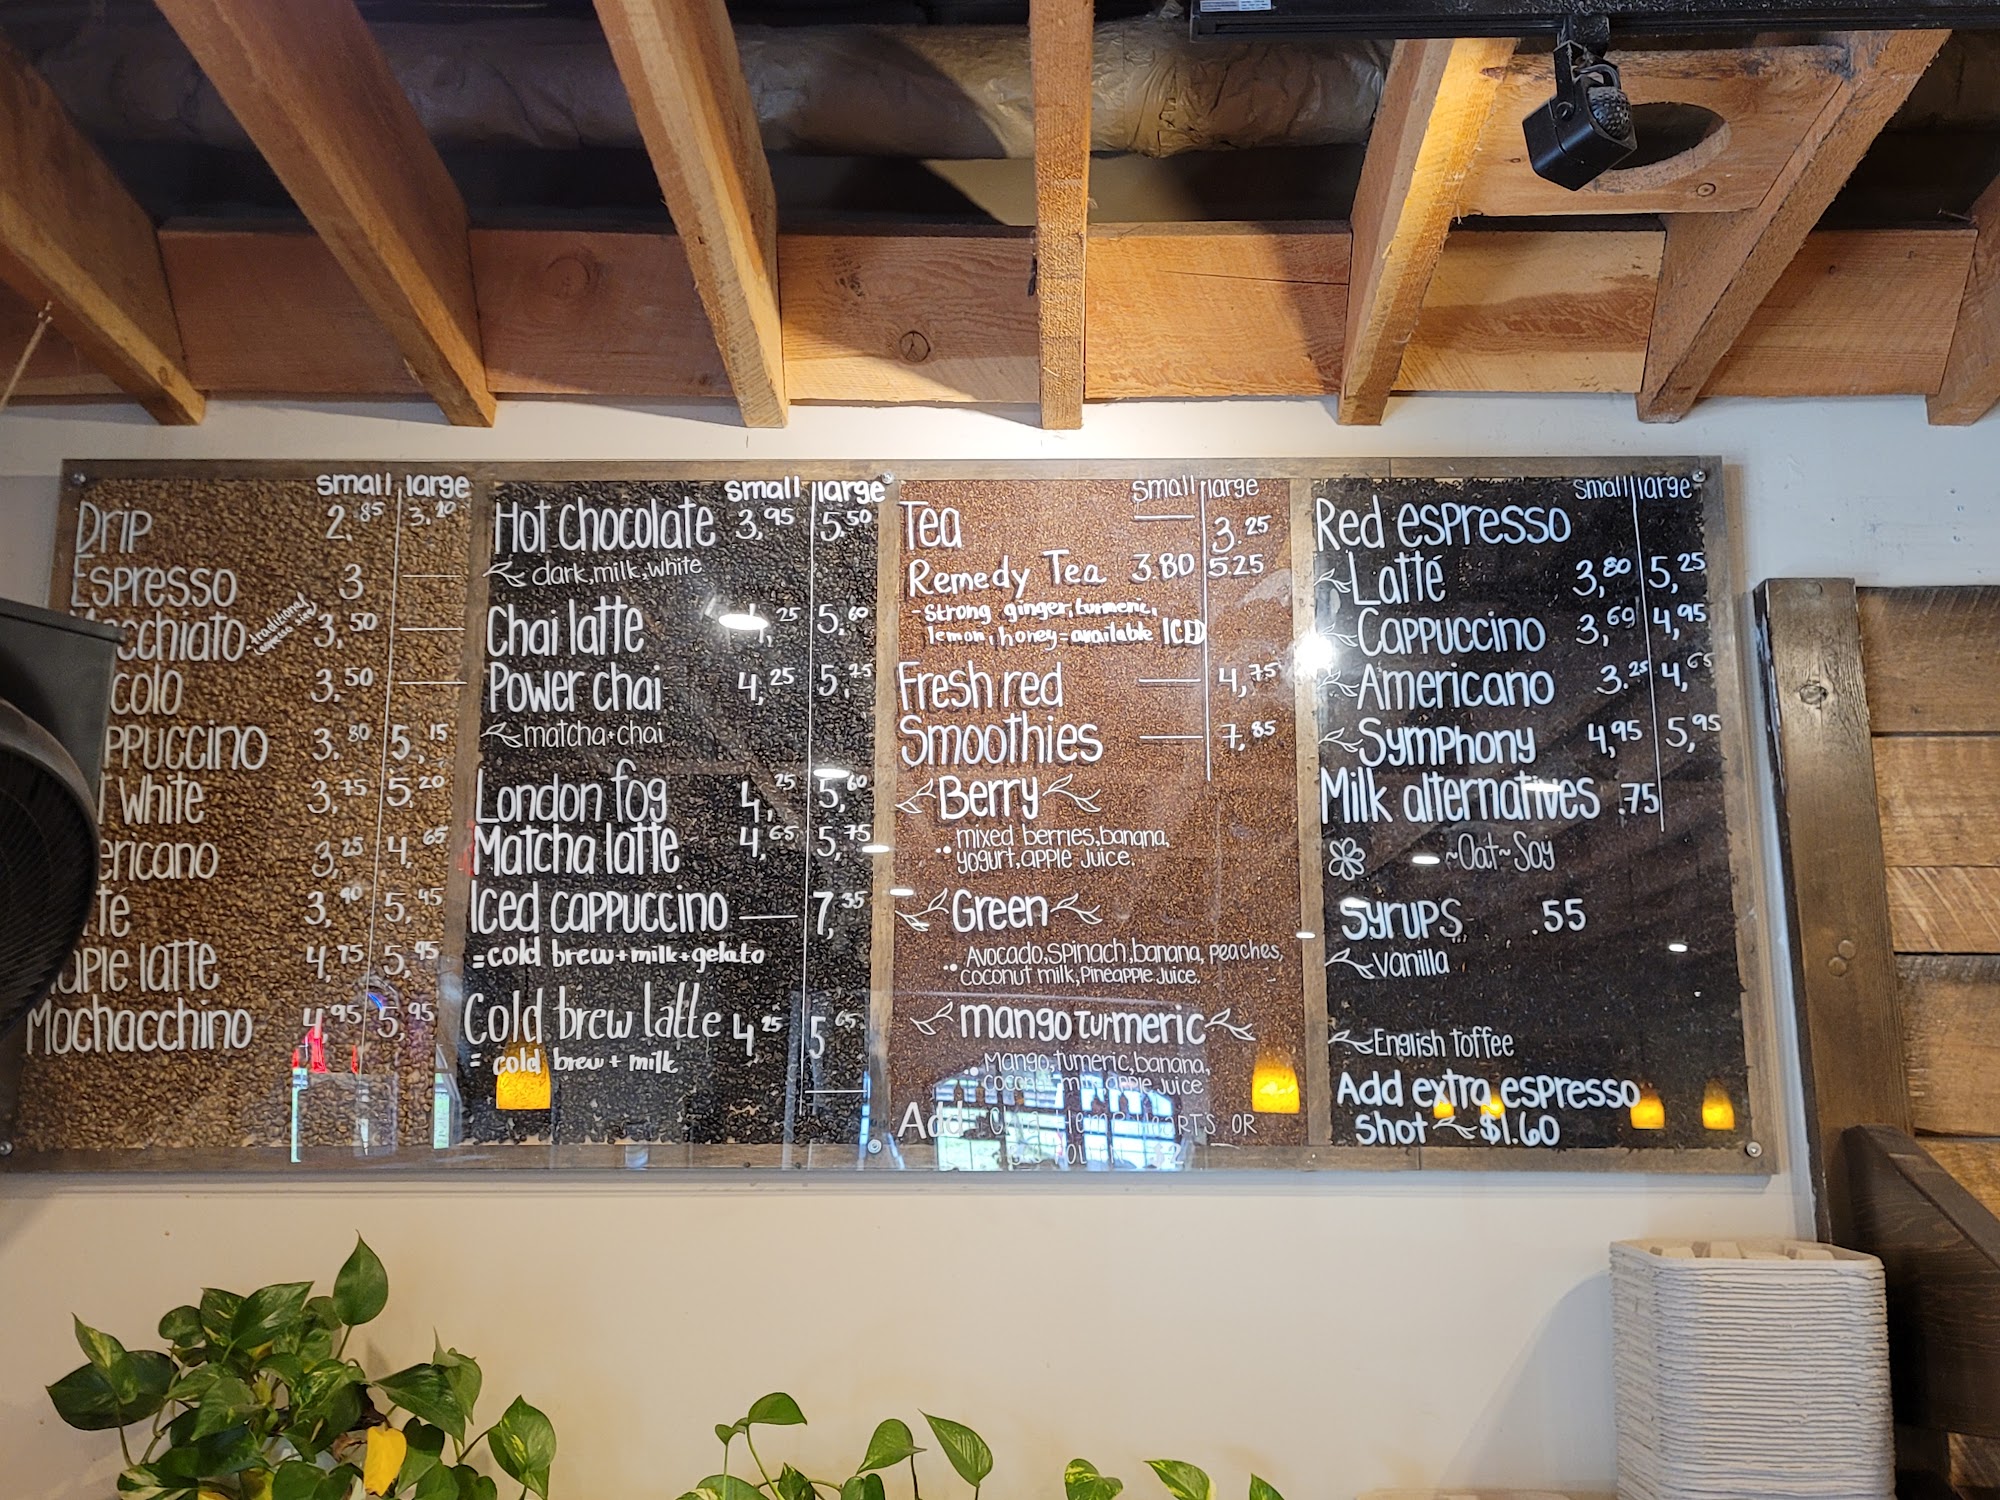 small large
Drip 2.85 3.20
Espresso 3
cchiato traditional 3.50
colo 3.50
ppuccino 3.80 5.15
White 3.75 5.20
ericano 3.25 4.65
te 3.40 5.45
aple latte 4.75 5.95
Mochacchino 4.95 5.95
small large
Hot chocolate 3.95 5.50
dark, milk, white
Chai latte 4.25 5.60
Power chai 4.25 5.25
matcha+chai
London fog 4.25 5.60
Matcha latte 4.65 5.75
Iced cappuccino 7.35
=cold brew+milk+gelato
Cold brew latte 4.25 5.65
= cold brew + milk
small large
Tea 3.25
Remedy Tea 3.80 5.25
-strong ginger, turmeric,
lemon, honey = available ICED
Fresh red 4.75
Smoothies 7.85
Berry
mixed berries, banana,
yogurt, apple juice.
Green
Avocado, spinach, banana, peaches,
coconut milk, pineapple juice.
mango turmeric
Mango, tumeric, banana,
coconut milk, apple juice
Add Hemp Hearts or
small large
Red espresso
Latté 3.80 5.25
Cappuccino 3.60 4.95
Americano 3.25 4.65
Symphony 4.95 5.95
Milk alternatives .75
~Oat~Soy
Syrups .55
vanilla
English Toffee
Add extra espresso
shot ~ $1.60